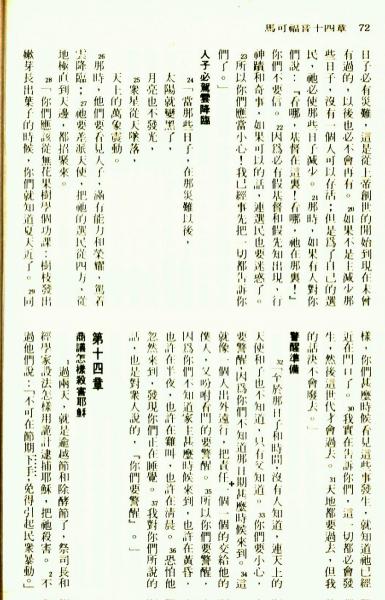 馬可福音十四章 72
日子必有災難，這是從上帝創世的開始到現在未曾
有過的，以後也必不會再有。20如果不是主減少那
些日子，沒有一個人可以存活；但是爲了自己的選
民，祂必使那些日子減少。21那時，如果有人對你
們說：『看哪，基督在這裏！看哪，祂在那裏！』
你們不要信。22因爲必有假基督和假先知出現，行
神蹟和奇事，如果可以的話，連選民也要迷惑了。
23所以你們應當小心！我已經事先把一切都告訴你
們了。」
人子必駕雲降臨
24「當那些日子，在那災難以後，
太陽就變黑了，
月亮也不發光，
25衆星從天墜落，
天上的萬象震動。
26那時，他們要看見人子，滿有能力和榮耀，駕着
雲降臨；27祂要差派天使，把祂的選民從四方，從
地極直到天邊，都招聚來。
28「你們應該從無花果樹學個功課：樹枝發出
嫩芽長出葉子的時候，你們就知道夏天近了。29同
樣，你們甚麼時候看見這些事發生，就知道祂已經
近在門口了。30我實在告訴你們，這一切都必會發
生，然後這世代才會過去。31天地都要過去，但我
的話決不會廢去。
警醒準備
32「至於那日子和時間，沒有人知道，連天上的
天使和子也不知道，只有父知道。33你們要小心，
要警醒，因爲你們不知道那日期甚麼時候來到。34這
就像一個人出外遠行，把責任一個一個的交給他的
僕人，又吩咐看門的要警醒。35所以你們要警醒，
因爲你們不知道家主甚麼時候來到，也許在黃昏，
也許在半夜，也許在雞叫，也許在清晨。36恐怕他
忽然來到，發現你們正在睡覺。37我對你們所說的
話，也是對衆人說的，『你們要警醒』。」
第十四章
商議怎樣殺害耶穌
1過兩天，就是逾越節和除酵節了，祭司長和
經學家設法怎樣用詭計逮捕耶穌，把祂殺害。2不
過他們說：「不可在節期下手，免得引起民衆暴動。」